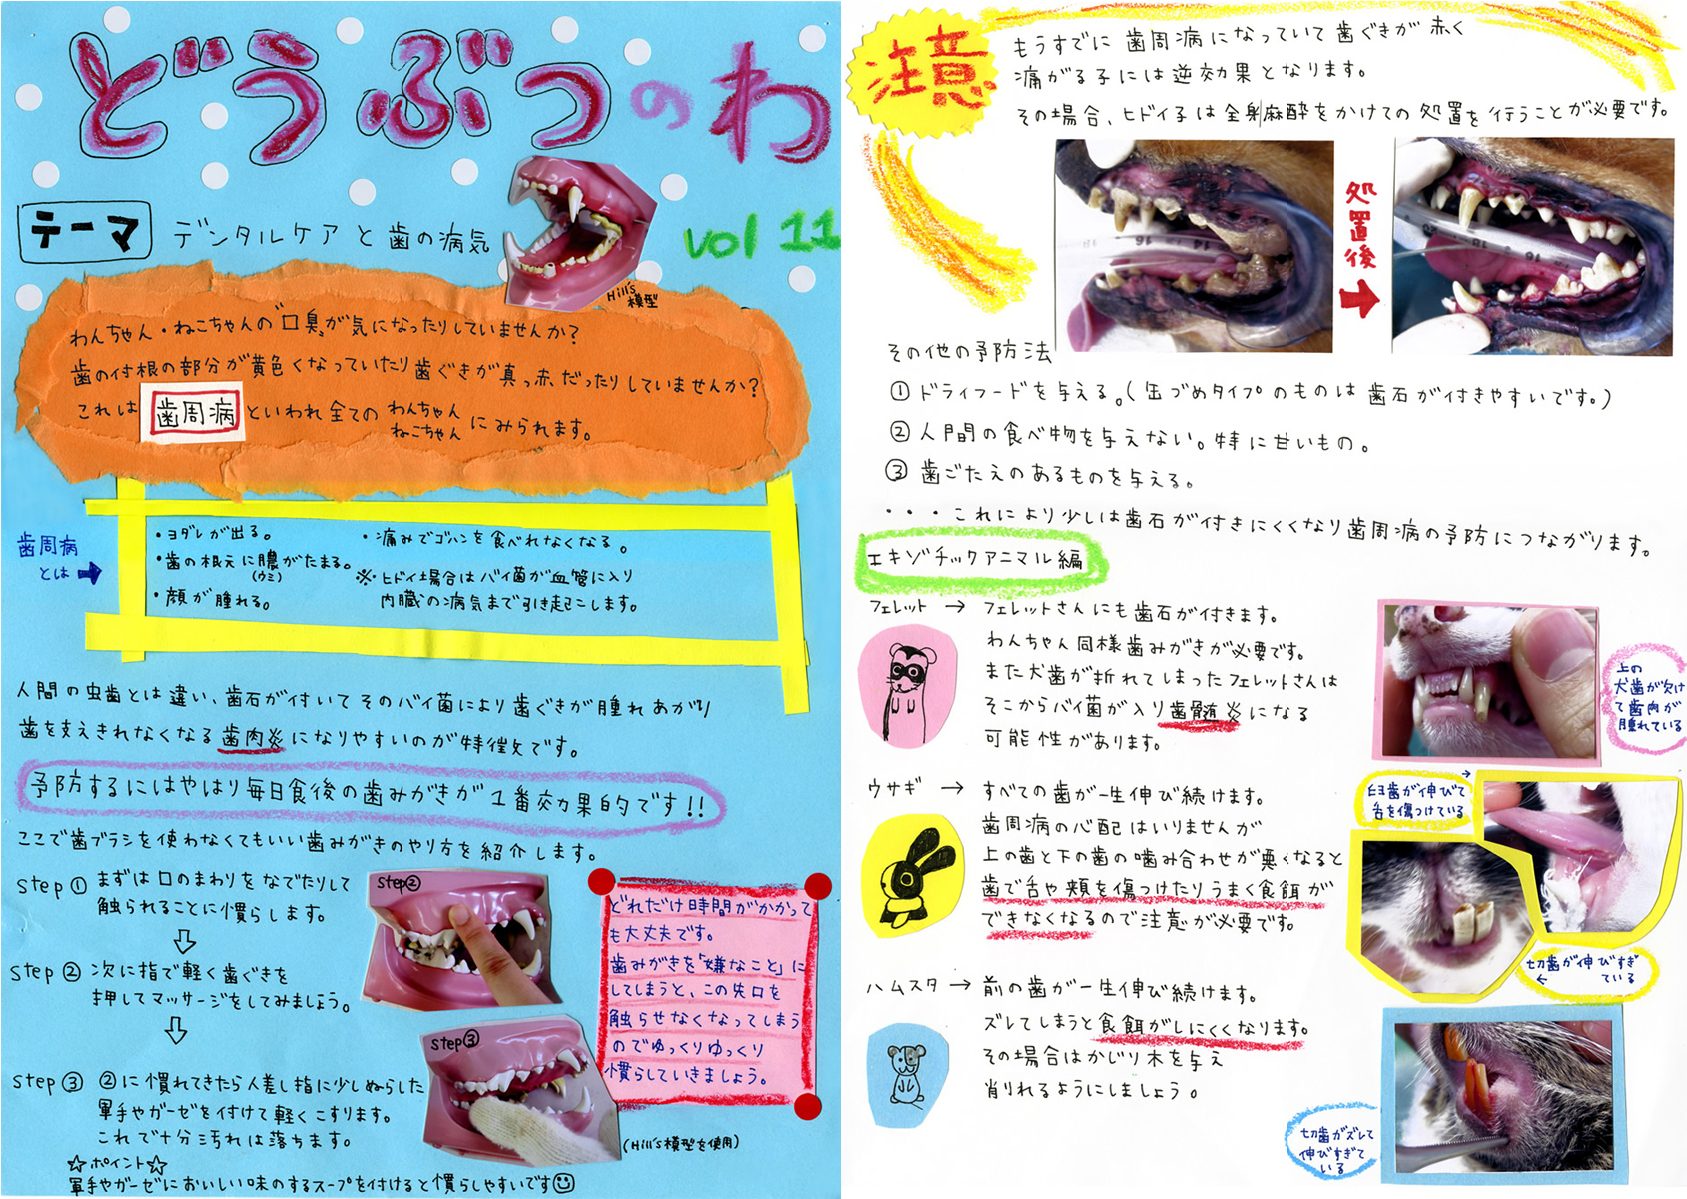 どうぶつのわ
テーマ デンタルケアと歯の病気
vol 11
Hill's
模型
わんちゃん・ねこちゃんの"口臭"が気になったりしていませんか?
歯の付根の部分が黄色くなっていたり歯ぐきが真っ赤だったりしていませんか?
これは 歯周病 といわれ全ての わんちゃん ねこちゃん にみられます。
歯周病
とは→
・ヨダレが出る。
・歯の根元に膿がたまる。
(ウミ)
・顔が腫れる。
・痛みでゴハンを食べれなくなる。
※ヒドイ場合はバイ菌が血管に入り
内臓の病気まで引き起こします。
人間の虫歯とは違い、歯石が付いてそのバイ菌により歯ぐきが腫れあがり
歯を支えきれなくなる歯肉炎になりやすいのが特徴です。
予防するにはやはり毎日食後の歯みがきが1番効果的です!!
ここで歯ブラシを使わなくてもいい歯みがきのやり方を紹介します。
step① まずは口のまわりをなでたりして
触られることに慣らします。
step② 次に指で軽く歯ぐきを
押してマッサージをしてみましょう。
step③ ②に慣れてきたら人差し指に少しぬらした
軍手やガーゼを付けて軽くこすります。
これで十分汚れは落ちます。
☆ポイント☆
軍手やガーゼにおいしい味のするスープを付けると慣らしやすいです
step②
step③
(Hill's模型を使用)
どれだけ時間がかかって
も大丈夫です。
歯みがきを「嫌なこと」に
してしまうと、この先口を
触らせなくなってしまう
のでゆっくりゆっくり
慣らしていきましょう。
注意
もうすでに歯周病になっていて歯ぐきが赤く
痛がる子には逆効果となります。
その場合、ヒドイ子は全身麻酔をかけての処置を行うことが必要です。
処置後
その他の予防法
①ドライフードを与える。(缶づめタイプのものは歯石が付きやすいです。)
②人間の食べ物を与えない。特に甘いもの。
③歯ごたえのあるものを与える。
・・・これにより少しは歯石が付きにくくなり歯周病の予防につながります。
エキゾチックアニマル編
フェレット → フェレットさんにも歯石が付きます。
わんちゃん同様歯みがきが必要です。
また犬歯が折れてしまったフェレットさんは
そこからバイ菌が入り歯髄炎になる
可能性があります。
上の
犬歯が欠け
て歯肉が
腫れている
ウサギ → すべての歯が一生伸び続けます。
歯周病の心配はいりませんが
上の歯と下の歯の噛み合わせが悪くなると
歯で舌や頬を傷つけたりうまく食餌が
できなくなるので注意が必要です。
臼歯が伸びて
舌を傷つけている
切歯が伸びすぎ
ている
ハムスタ → 前の歯が一生伸び続けます。
ズレてしまうと食餌がしにくくなります。
その場合はかじり木を与え
削れるようにしましょう。
切歯がズレて
伸びすぎて
いる